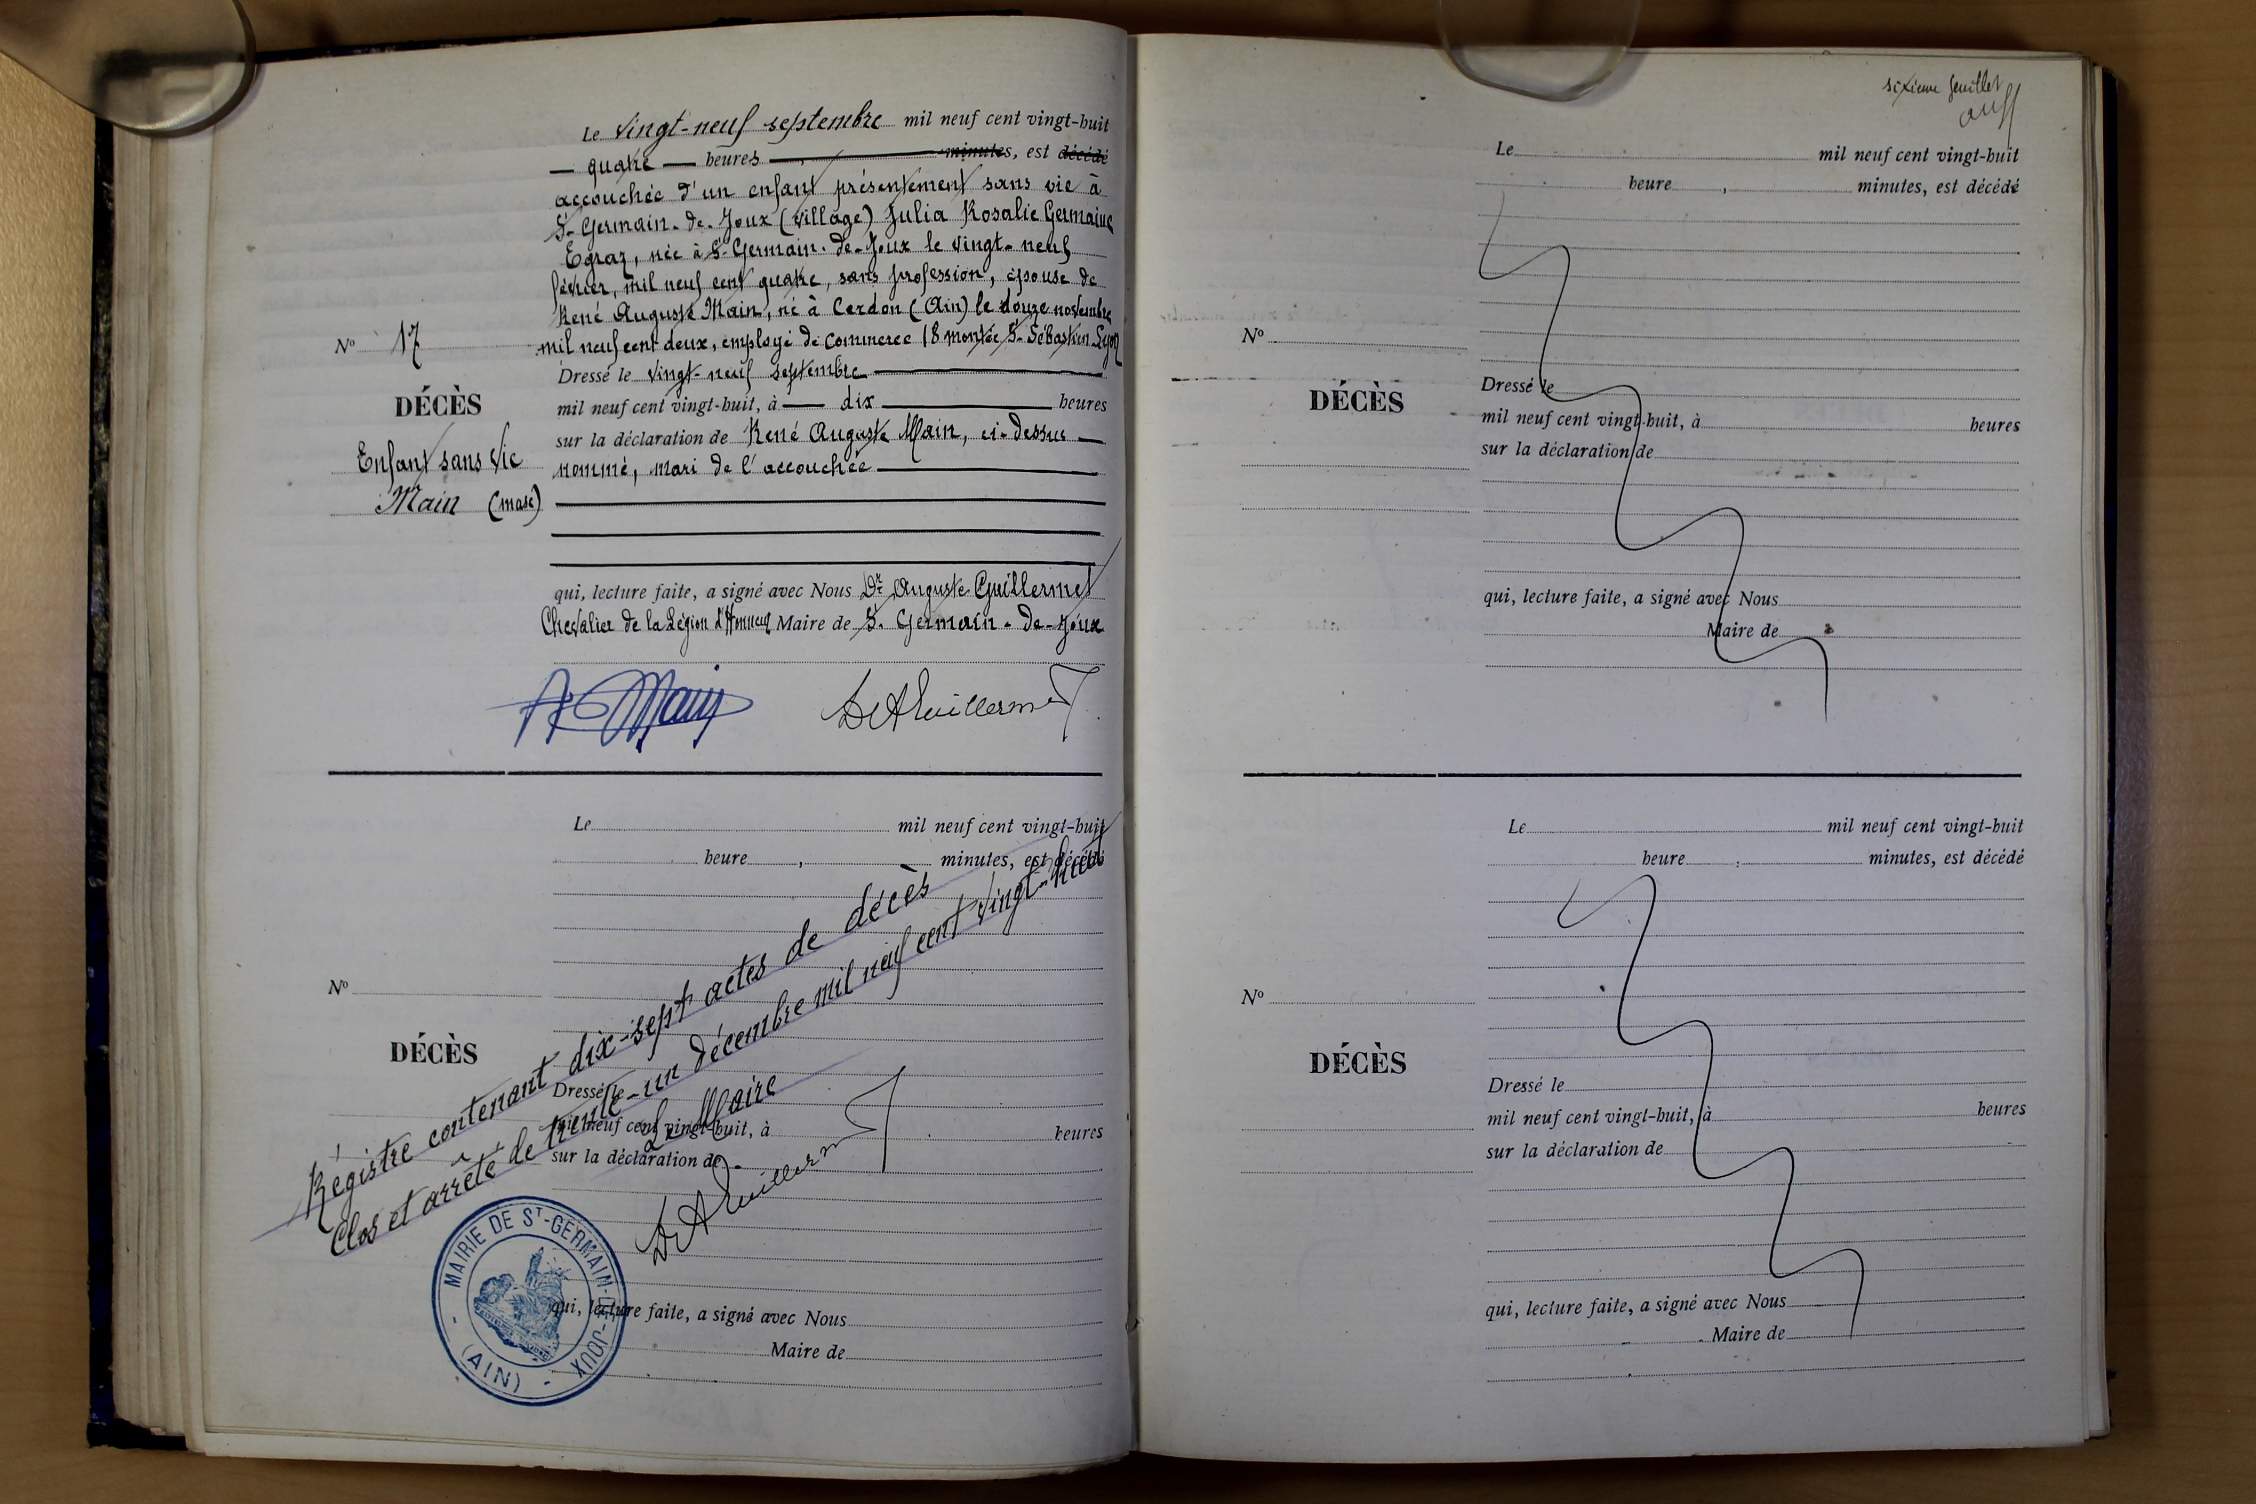 Le vingt-neuf septembre mil neuf cent vingt-huit
— quatre — heures — minutes, est décédé
accouchée d'un enfant présentement sans vie à
St-Germain-de-Joux (village) Julia Rosalie Germaine
Egraz, née à St-Germain-de-Joux le vingt-neuf
février, mil neuf cent quatre, sans profession, épouse de
René Auguste Main, né à Cerdon (Ain) le douze novembre
mil neuf cent deux, employé de commerce 18 montée St-Sébastien Lyon
Dressé le vingt-neuf septembre
mil neuf cent vingt-huit, à — dix — heures
sur la déclaration de René Auguste Main, ci-dessus
nommé, mari de l'accouchée
qui, lecture faite, a signé avec Nous Dr Auguste Guillermet
Chevalier de la Légion d'Honneur Maire de St-Germain-de-Joux
No 17
DÉCÈS
Enfant sans vie
Main (masc)
Main
Dr A Guillermet
Le mil neuf cent vingt-huit
heure , minutes, est décédé
No
DÉCÈS
Dressé le
mil neuf cent vingt-huit, à heures
sur la déclaration de
qui, lecture faite, a signé avec Nous
Maire de
Régistre contenant dix-sept actes de décès
Clos et arrêté de trente-un décembre mil neuf cent vingt-huit
Le Maire
Dr A Guillermet
MAIRIE DE ST-GERMAIN-DE-JOUX
(AIN)
sixième feuillet
Le mil neuf cent vingt-huit
heure , minutes, est décédé
No
DÉCÈS
Dressé le
mil neuf cent vingt-huit, à heures
sur la déclaration de
qui, lecture faite, a signé avec Nous
Maire de
Le mil neuf cent vingt-huit
heure , minutes, est décédé
No
DÉCÈS
Dressé le
mil neuf cent vingt-huit, à heures
sur la déclaration de
qui, lecture faite, a signé avec Nous
Maire de